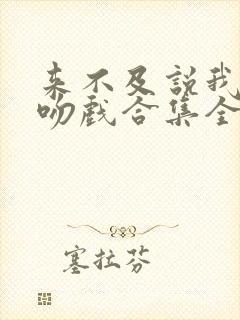 来不及説我
吻戲合集全
塞拉芬